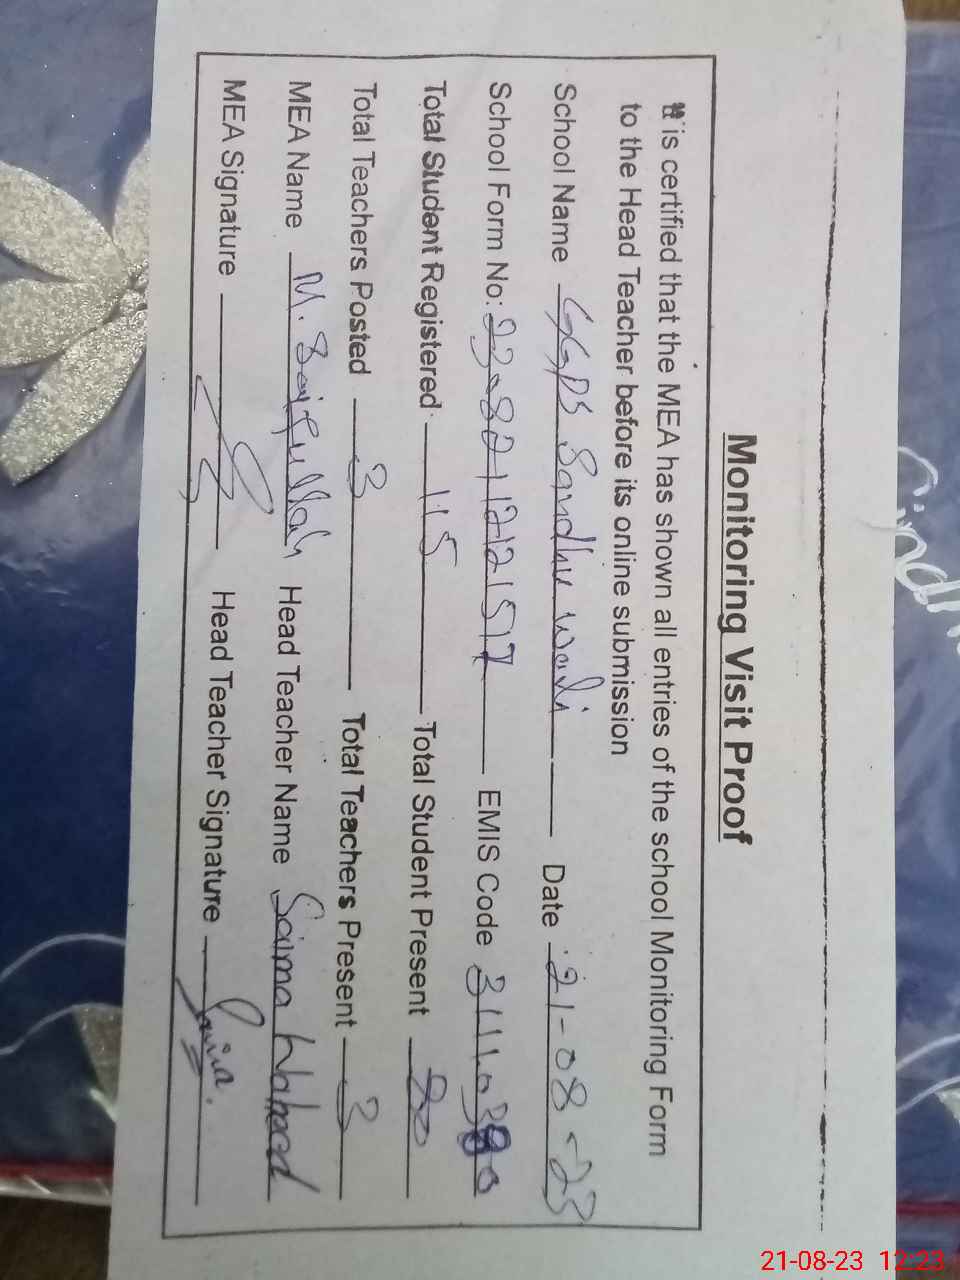 Monitoring Visit Proof
It is certified that the MEA has shown all entries of the school Monitoring Form
to the Head Teacher before its online submission
School Name GGPS Sandhu wali Date 21-08-23
School Form No: EMIS Code
Total Student Registered 115 Total Student Present
Total Teachers Posted 3 Total Teachers Present 3
MEA Name M. Saifullah Head Teacher Name Saima Waheed
MEA Signature Head Teacher Signature Saima.
21-08-23 12:23